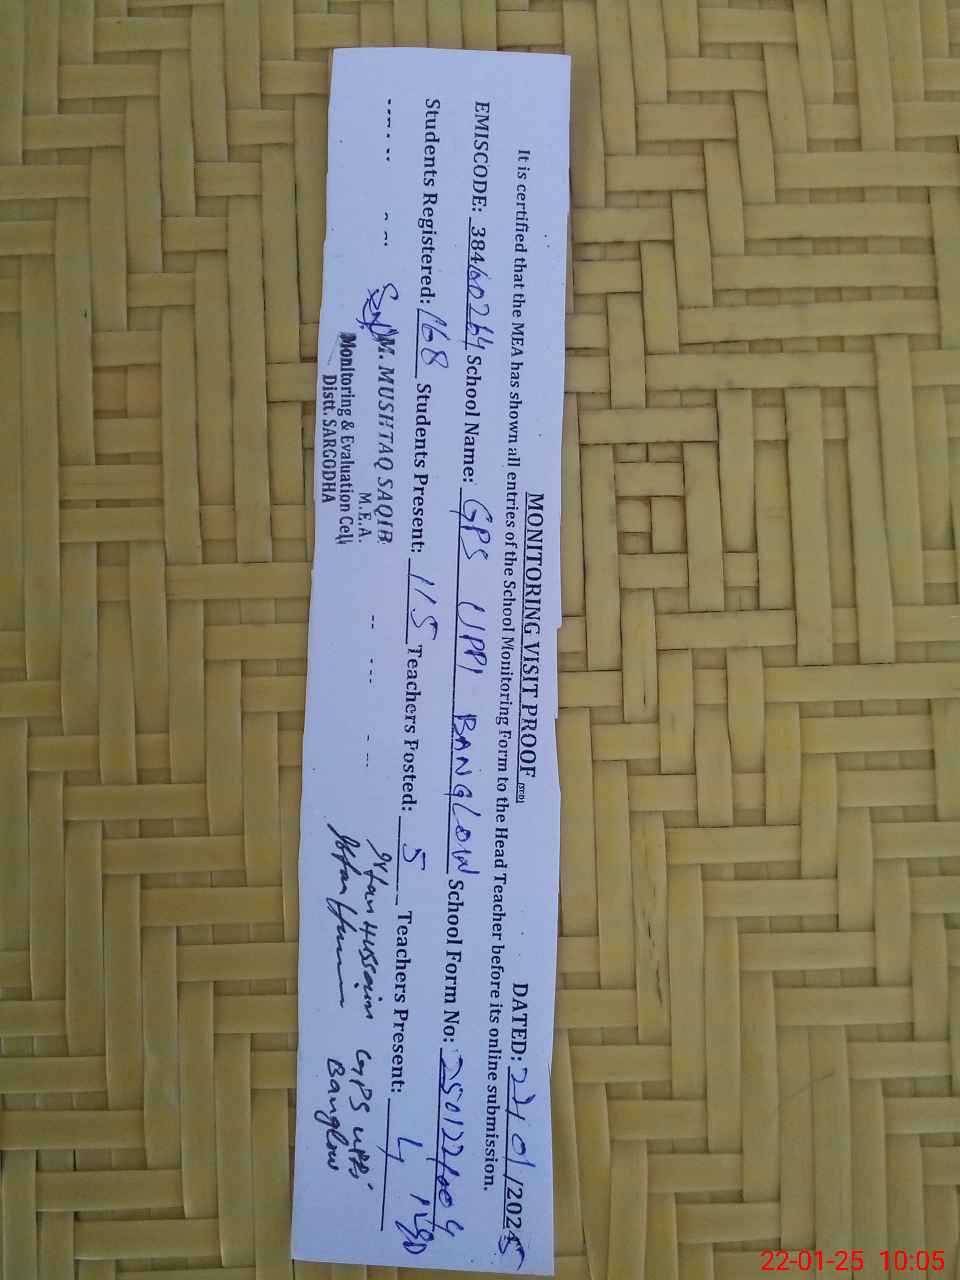 MONITORING VISIT PROOF
DATED: 22/01/2025
It is certified that the MEA has shown all entries of the School Monitoring Form to the Head Teacher before its online submission.
EMISCODE: 384/60264 School Name: GPS UPPI BANGLOW School Form No: 250122/004
Students Registered: 168 Students Present: 115 Teachers Posted: 5 Teachers Present: 4
M. MUSHTAQ SAQIB
M.E.A.
Monitoring & Evaluation Cell
Distt. SARGODHA
Hussain GPS Uppi
Banglow
22-01-25 10:05